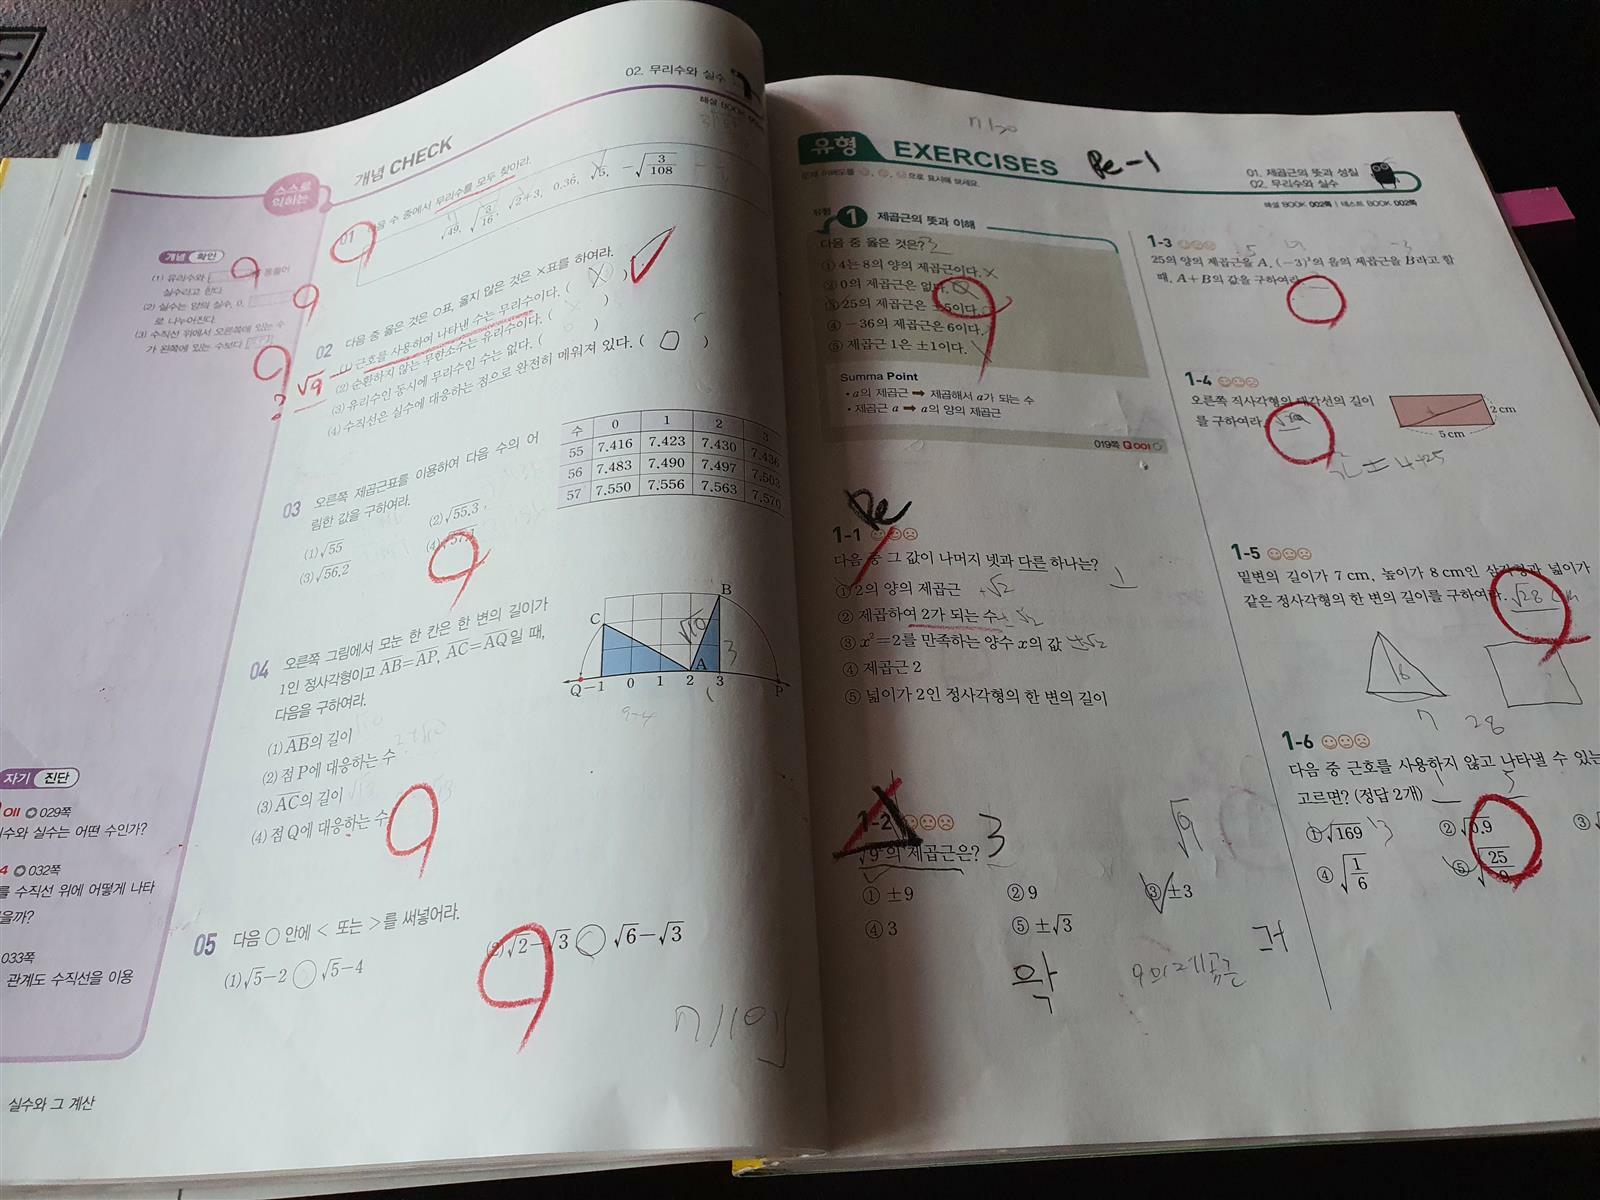 02. 무리수와 실수
해설 BOOK
개념 CHECK
스스로
익히는
개념 확인
(1) 유리수와
실수라고 한다.
(2) 실수는 양의 실수, 0,
로 나누어진다.
(3) 수직선 위에서 오른쪽에 있는 수
가 왼쪽에 있는 수보다
01 수 중에서 무리수를 모두 찾아라.
√49, √(3/16), √2+3, 0.36, √5, −√(3/108)
02 다음 중 옳은 것은 ○표, 옳지 않은 것은 ×표를 하여라.
근호를 사용하여 나타낸 수는 무리수이다. ( X )
√9
(2) 순환하지 않는 무한소수는 유리수이다. ( )
(3) 유리수인 동시에 무리수인 수는 없다. ( )
(4) 수직선은 실수에 대응하는 점으로 완전히 메워져 있다. ( O )
03 오른쪽 제곱근표를 이용하여 다음 수의 어
림한 값을 구하여라.
(1) √55
(2) √55.3
(3) √56.2
(4)
수 0 1 2 3
55 7.416 7.423 7.430 7.436
56 7.483 7.490 7.497 7.503
57 7.550 7.556 7.563 7.570
04 오른쪽 그림에서 모눈 한 칸은 한 변의 길이가
1인 정사각형이고 AB=AP, AC=AQ일 때,
다음을 구하여라.
(1) AB의 길이
(2) 점 P에 대응하는 수
(3) AC의 길이
(4) 점 Q에 대응하는 수
B
C
√10
3
A
Q −1 0 1 2 3 P
05 다음 ○ 안에 < 또는 >를 써넣어라.
(1) √5−2 ○ √5−4
(2) √2−√3 ○ √6−√3
자기 진단
029쪽
수와 실수는 어떤 수인가?
032쪽
를 수직선 위에 어떻게 나타
을까?
033쪽
관계도 수직선을 이용
실수와 그 계산
유형 EXERCISES
Re-1
으로 표시해 보세요.
01. 제곱근의 뜻과 성질
02. 무리수와 실수
해설 BOOK 002쪽 | 테스트 BOOK 002쪽
유형 1 제곱근의 뜻과 이해
다음 중 옳은 것은? 3
① 4는 8의 양의 제곱근이다.
② 0의 제곱근은 없다.
③ 25의 제곱근은 ±5이다.
④ −36의 제곱근은 6이다.
⑤ 제곱근 1은 ±1이다.
Summa Point
• a의 제곱근 ➡ 제곱해서 a가 되는 수
• 제곱근 a ➡ a의 양의 제곱근
019쪽 Q 001
Re
1-1
다음 중 그 값이 나머지 넷과 다른 하나는?
① 2의 양의 제곱근 +√2
② 제곱하여 2가 되는 수
③ x²=2를 만족하는 양수 x의 값 ±√2
④ 제곱근 2
⑤ 넓이가 2인 정사각형의 한 변의 길이
1-2
√9의 제곱근은? 3
√9
① ±9
② 9
③ ±3
④ 3
⑤ ±√3
9의 제곱근
1-3
25의 양의 제곱근을 A, (−3)²의 음의 제곱근을 B라고 할
때, A+B의 값을 구하여라.
1-4
오른쪽 직사각형의 대각선의 길이
를 구하여라.
2 cm
5 cm
1-5
밑변의 길이가 7 cm, 높이가 8 cm인 삼각형과 넓이가
같은 정사각형의 한 변의 길이를 구하여라. √28
7 28
1-6
다음 중 근호를 사용하지 않고 나타낼 수 있는
고르면? (정답 2개)
① √169 13
② √0.9
③
④ √(1/6)
⑤